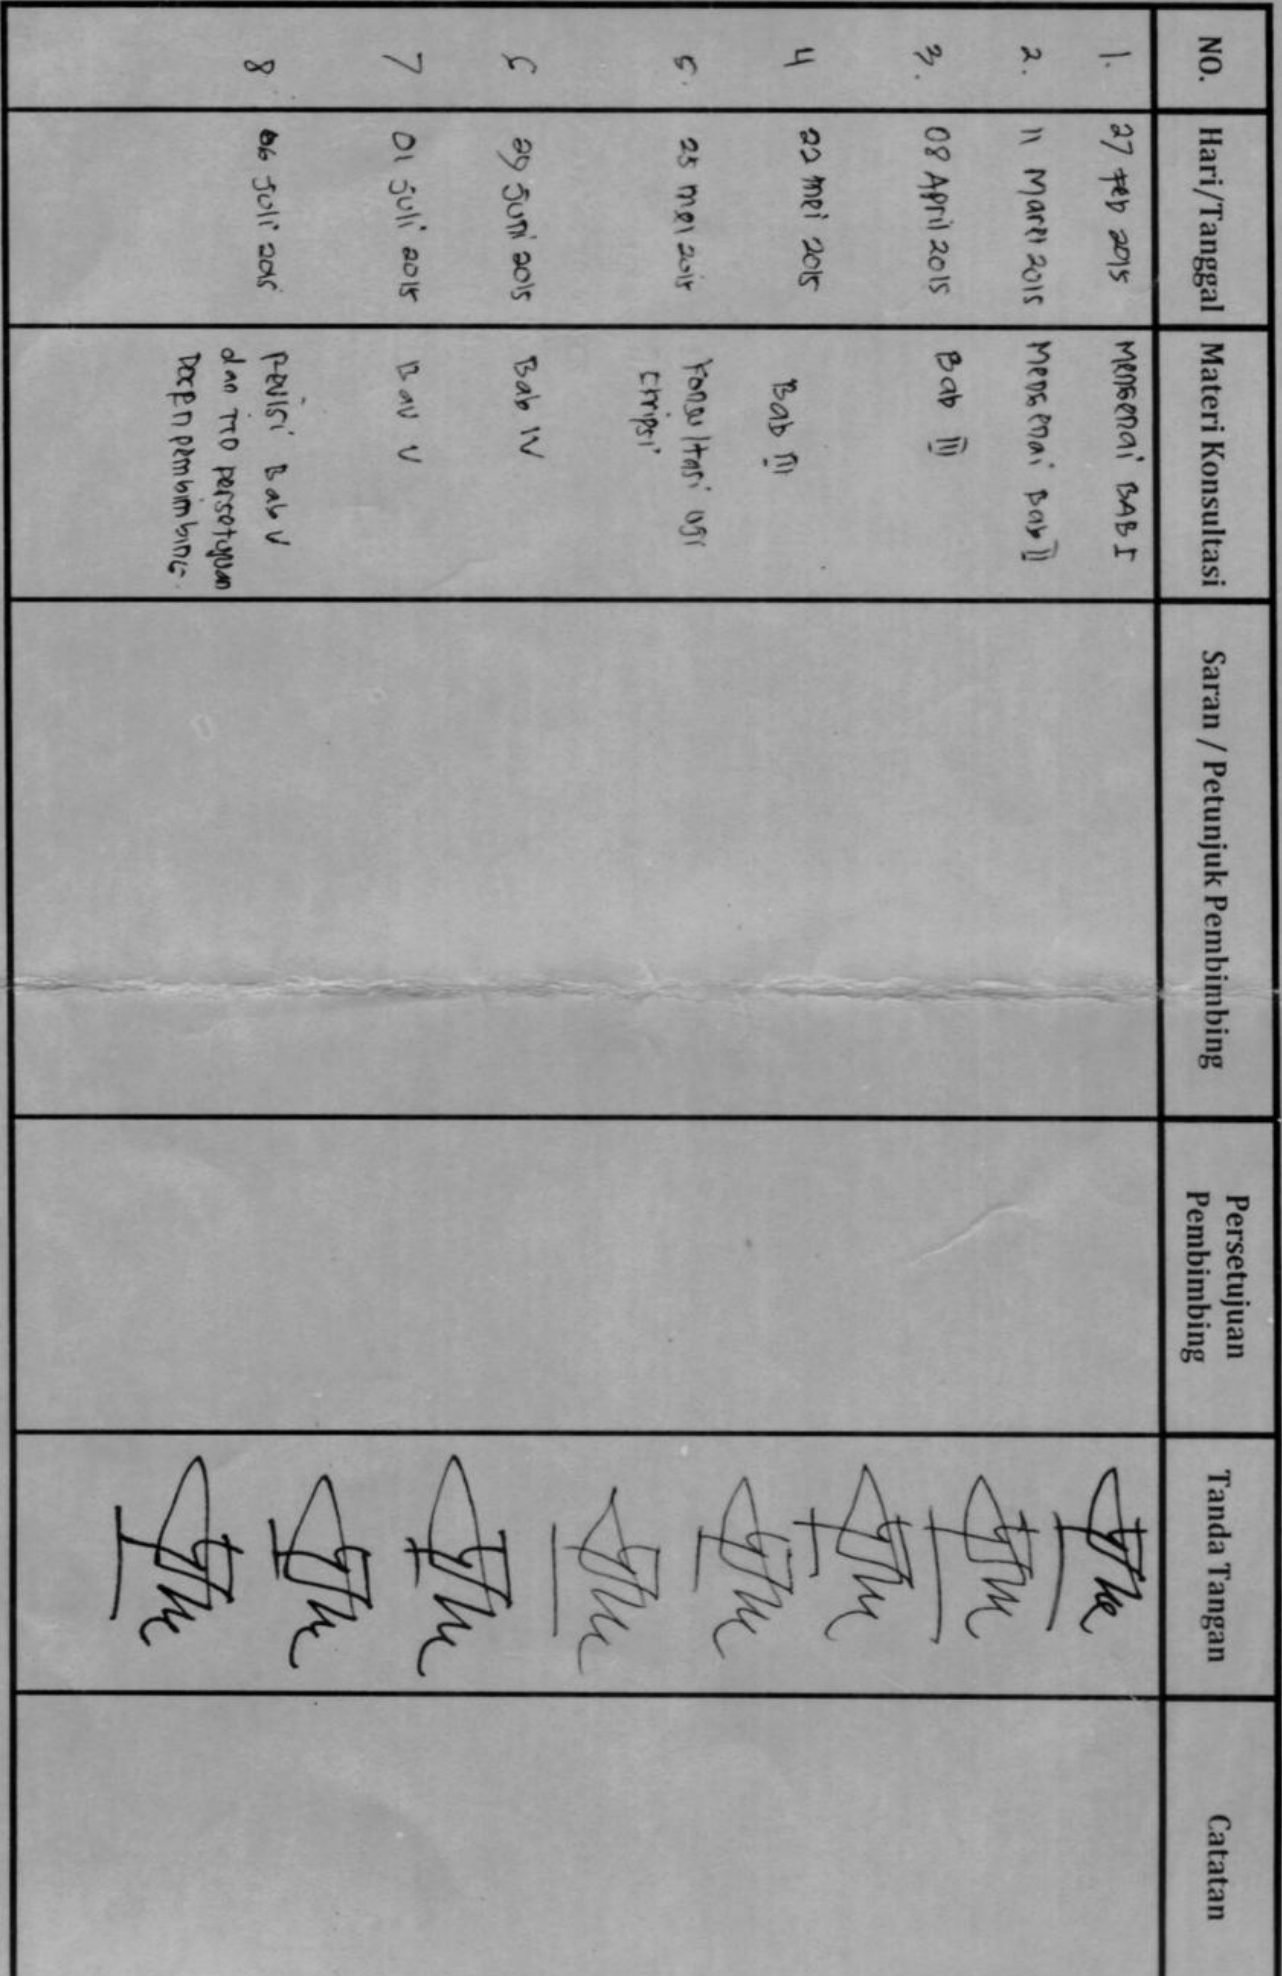 NO. Hari/Tanggal Materi Konsultasi Saran / Petunjuk Pembimbing Persetujuan Pembimbing Tanda Tangan Catatan
1. 27 Feb 2015 Mengenai BAB I
2. 11 Maret 2015 Mengenai Bab II
3. 08 April 2015 Bab III
4 22 mei 2015 Bab III
5. 25 mei 2015 Konsultasi isi
Skripsi
6 29 Juni 2015 Bab IV
7 01 Juli 2015 Bav V
8 06 Juli 2015 Revisi Bab V
dan TTD persetujuan
Dosen pembimbing.